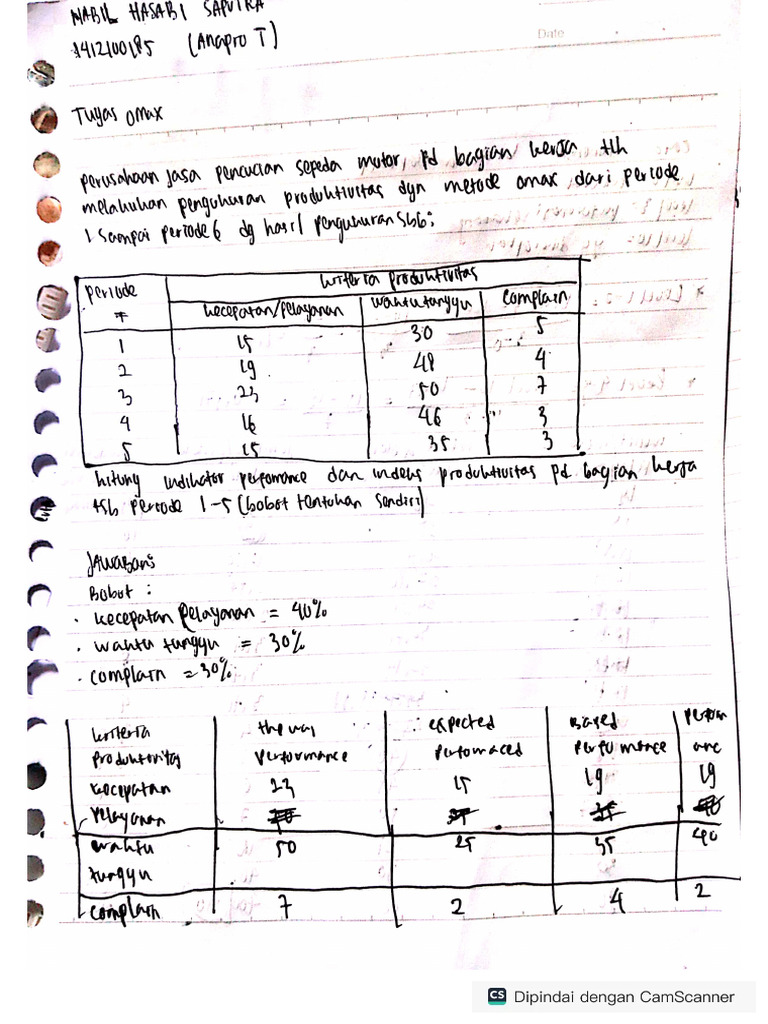 NABIL HASABI SAPUTRA
1412100185 (Anapro T)
Date
Tugas OMAX
perusahaan jasa pencucian sepeda motor, pd bagian kerja tlh
melakukan pengukuran produktivitas dgn metode omax dari periode
1 sampai periode 6 dg hasil pengukuran sbb;
Periode kriteria produktivitas
kecepatan/pelayanan waktu tunggu complain
1 15 30 5
2 19 48 4
3 23 50 7
4 16 46 3
5 15 35 3
hitung indikator perfomance dan indeks produktivitas pd bagian kerja
tsb periode 1-5 (bobot tentukan sendiri)
Jawaban:
Bobot :
• kecepatan pelayanan = 40%
• waktu tunggu = 30%
• complain = 30%
kriteria the way expected Based perform
produktivitas performance perfomaced perfo mance anc
kecepatan 23 15 19 19
pelayanan
waktu 50 25 35 40
tunggu
complain 7 2 4 2
CS Dipindai dengan CamScanner